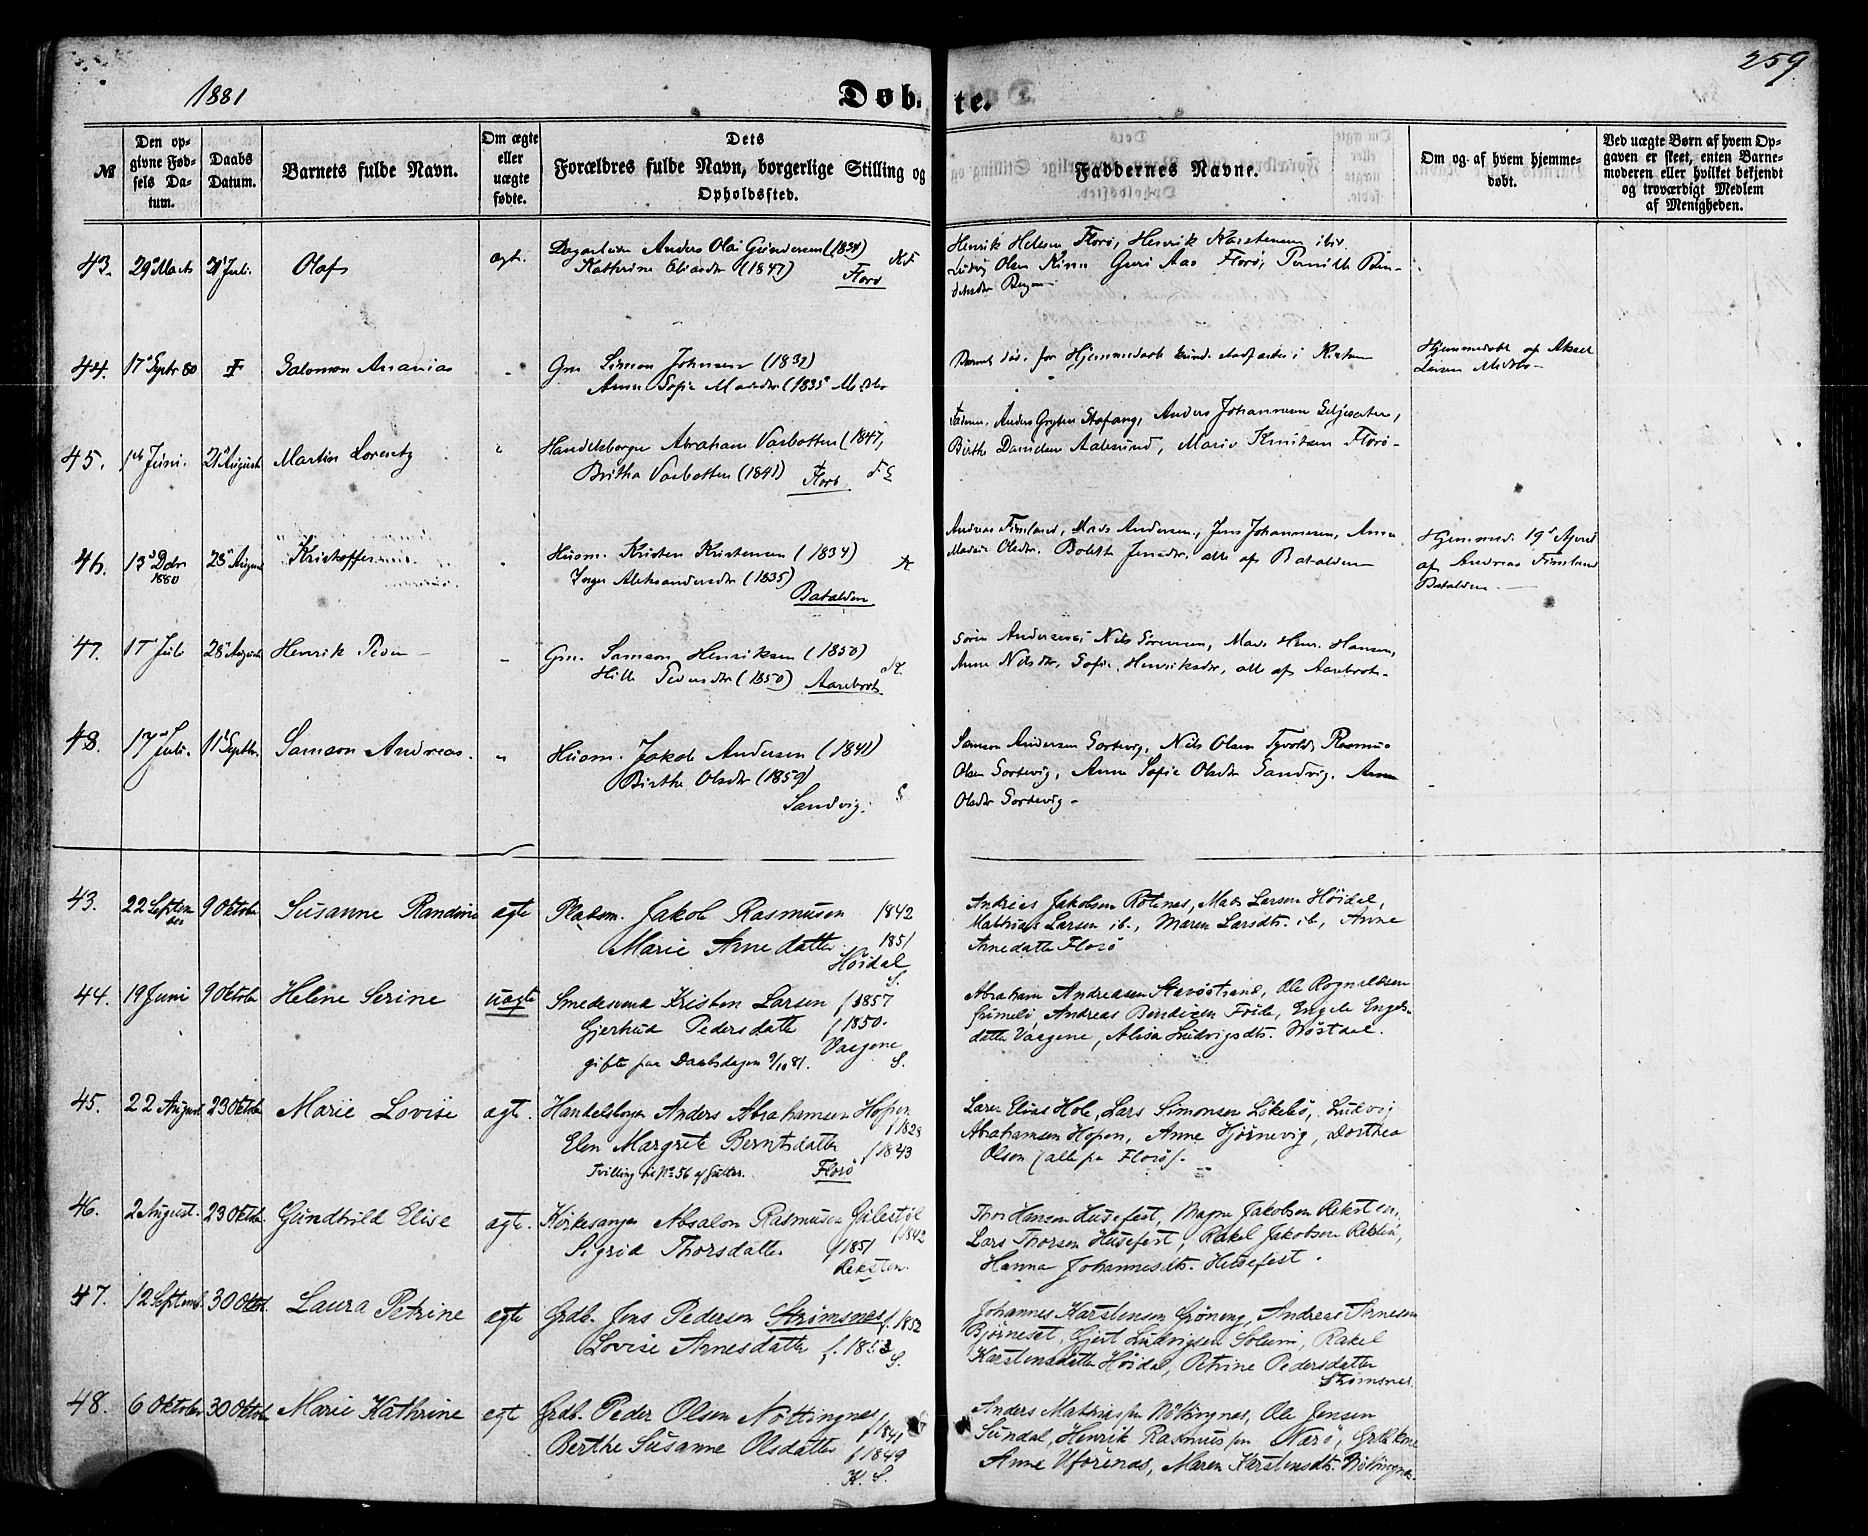 1881
259
Døbte.
№
Den opgivne Fødsels Datum.
Daabs Datum.
Barnets fulde Navn.
Om ægte eller uægte fødte.
Dets Forældres fulde Navn, borgerlige Stilling og Opholdssted.
Faddernes Navne.
Om og af hvem hjemmedøbt.
Ved uægte Børn af hvem Opgaven er skeet, enten Barnemoderen eller hvilket bekjendt og troværdigt Medlem af Menigheden.
43. 29 Marts Juli. Olaf ægt.
Anders Olai Gundersen (1838)
Kathrine (1847)
Florø
Henrik Helesen Florø, Henrik Karstensen ibid
Ludvig Olsen Kinn Guri Aae Florø, Pernille
Bergen
44. 17 Septbr 80 Salomon Ananias
Gm Simon Johnsen (1832)
Anne Sofie (1835
for Hjemmedaab i Kirken
Hjemmedøbt af Aksel
Larsen
45. Juni. 21 August Martin Lorentz
Handelsborger Abraham Vasbotten (1847,
Britha Vasbotten (1841) Florø
Anders Gryten Stafang, Anders Johannesen
Birthe Danielsen Aalesund, Marie Knutsen Florø
46. 13 Dcbr 1880 28 August Kristoffer
Husm. Kristen Kristensen (1834)
Inger Aleksandersdtr (1835)
Batalden
Andreas Fimland, Mads Andersen, Jens Johannesen, Anne
Olsdtr. Bolette Jensdtr. alle af Batalden
Hjemmed. 19 April
af Andreas Fimland
Batalden.
47. 17 Juli 28 August Henrik
Gm. Samson Henriksen (1850)
(1850) Aarebrot
Søren Andersen, Nils Sørensen, Mads Henr. Hansen,
Anne Nilsdtr, Sofie Henriksdtr, alle af Aarebrot.
48. 17 Juli. 11 Septbr. Samson Andreas.
Husm. Jakob Andersen (1841)
Birthe Olsdtr (1859)
Sandvig.
Samson Andersen Sortevig, Nils Olsen Tyvold, Rasmus
Olsen Sortevig, Anne Sofie Olsdtr Sandvig. Anne
Olsdtr Sortevig
43. 22 September 9 Oktober Susanne Randine ægte
Pladsm. Jakob Rasmusen 1842
Marie Arnedatter 1851
Høidal
S.
Andreas Jakobsen Rotenes, Mads Larsen Høidal,
Mathias Larsen ib., Maren Larsdtr. ib, Anne
Arnedatter Florø
44. 19 Juni 9 Oktober Helene Serine uægte
Smedesvend Kristen Larsen f 1857
Gjertrud Pedersdatter f 1850.
Vaagene
gifte paa Daabsdagen 9/10 81. S.
Abraham Andreasen Stavøstrand, Ole Rognaldsen
Grimelii Andreas Bendixen Frile, Engele Engelsdatter
Vaagene, Alisa Ludvigsdtr. Nøstdal.
45. 22 August 23 Oktober Marie Lovise ægt.
Handelsborger Anders Abrahamsen Hopen
f 1828
Elen Margrete Berntsdatter f 1843
Tvilling til No 56 af Gutter. Florø
Lærer Elias Hole, Lars Simonsen Likebø, Ludvig
Abrahamsen Hopen, Anne Hjørnevig, Dorthea
Olson (alle pa Florø).
46. 2 August. 23 Oktob. Gundhild Elise ægt.
Kirkesanger Absalon Rasmusen Gilestøl
f 1842
Sigrid Thorsdatter f 1851
Reksten.
Thor Hansen Husefest, Magne Jakobsen Reksten,
Lars Thorsen Husefest, Rakel Jakobsen Reksten,
Hanna Johannesdtr. Husefest.
47. 12 Septemb. 30 Oktob. Laura Petrine ægte
Grdb. Jens Pedersen Strømsnes f. 1852
Lovise Arnesdatter f. 1853
S.
Johannes Karstensen Grøneng, Andreas Arnesen
Bjørneset, Gjert Ludvigsen Solum, Rakel
Karstensdatter Høidal, Petrine Pedersdatter
Strømsnes.
48. 6 Oktober 30 Oktob. Marie Kathrine ægt
Grdb. Peder Olsen Nøttingnes
f 1841
Berthe Susanne Olsdatter f 1849
K. S.
Anders Mathiassen Nøttingnes, Ole Jensen
Sundal, Henrik Rasmussen Nærø, Grdbkone
Anne Uførenes, Maren Karstensdtr. Nøttingnes